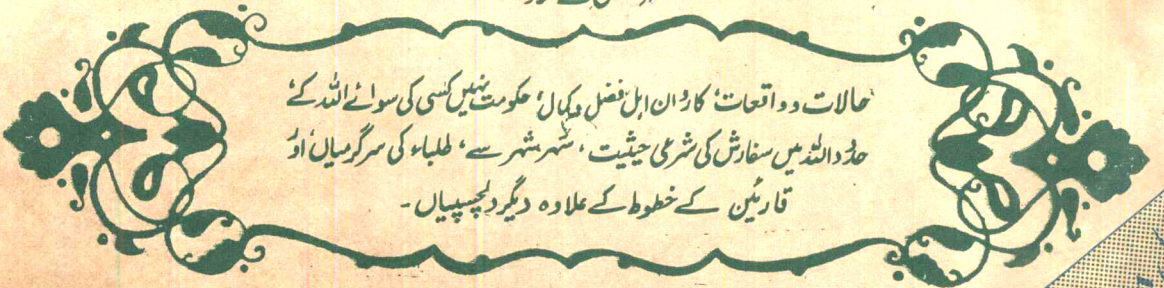 حالات و واقعات، کاروان اہل فضل و کمال، حکومت نہیں کسی کی سوائے اللہ کے،
حدود اللہ میں سفارش کی شرعی حیثیت، شہر شہر سے، طلباء کی سرگرمیاں، اور
قارئین کے خطوط کے علاوہ دیگر دلچسپیاں۔